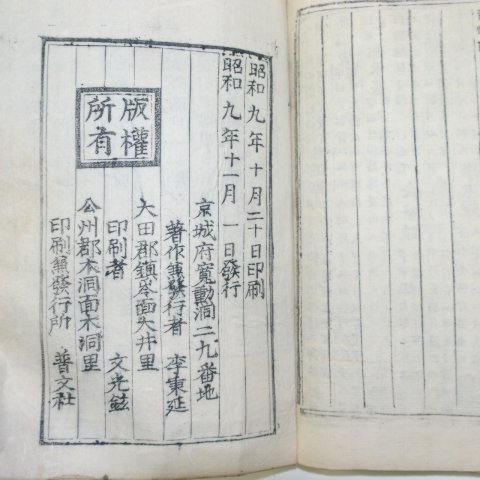 昭和九年十月二十日印刷
昭和九年十一月一日發行
京城府寬勳洞二九番地
著作兼發行者 李東延
大田郡鎭岑面大井里
印刷者 文光鉉
公州郡木洞面木洞里
印刷兼發行所 普文社
版權
所有